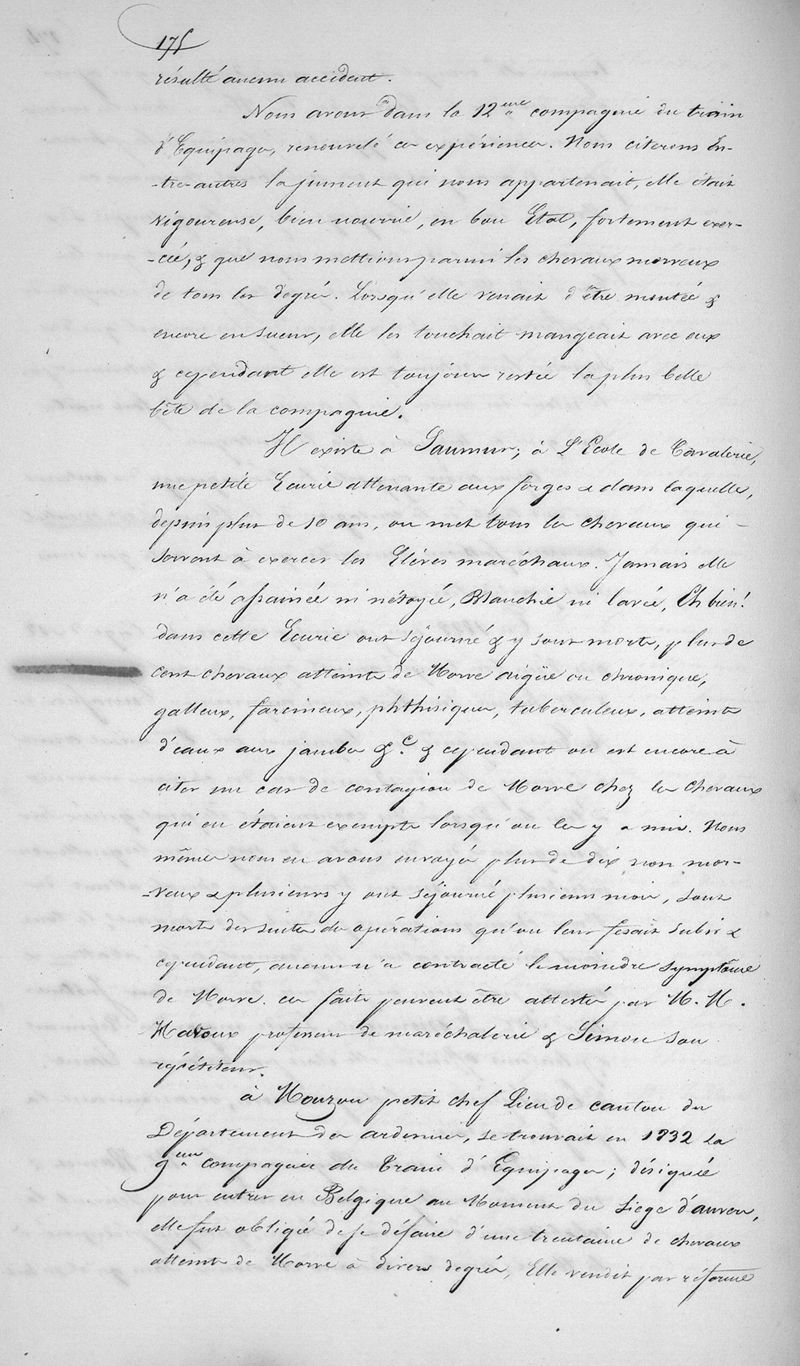 175
résulté aucun accident.
Nous avons dans la 12eme compagnie du train
d'Equipages, renouvelé ces expériences. Nous citerons En-
-tre-autres la jument qui nous appartenait, elle était
vigoureuse, bien nourrie, en bon Etat, fortement exer-
-cée, & que nous mettions parmi les chevaux morveux
de tous les degrés. Lorsqu'elle venait d'être montée &
encore en sueur, elle les touchait mangeait avec eux
& cependant elle est toujours restée la plus belle
bête de la compagnie.
Il existe à Saumur; à L'Ecole de Cavalerie,
une petite Ecurie attenante aux forges & dans laquelle,
depuis plus de 10 ans, on met tous les chevaux qui -
servent à exercer les Elèves maréchaux. Jamais elle
n'a été assainée ni nétoyée, Blanchie ni lavée, Eh bien!
dans cette Ecurie ont séjourné & y sont morts, plus de
cent chevaux atteints de Morve aigüe ou chronique,
galleux, farcineux, phthisiques, tuberculeux, atteints
d'eaux aux jambes &c. & cependant on est encore à
citer un cas de contagion de Morve chez les chevaux
qui en étaient exempts lorsqu'on les y a mis. Nous
mêmes nous en avons envoyés plus de dix non mor-
-veux & plusieurs y ont séjourné plusieurs mois, sont
morts des suites des opérations qu'on leur fesait subir &
cependant, aucun n'a contracté le moindre symptôme
de Morve. ces faits peuvent être attestés par M. M.
professeur de maréchalerie & Simon son
répétiteur.
à Mouzon petit chef Lieu de canton du
Département des ardennes, se trouvait en 1832 la
9eme compagnie du Train d'Equipages; désignée
pour entrer en Belgique au Moment du Siège d'anvers,
elle fut obligée de se défaire d'une trentaine de chevaux
atteints de Morve à divers degrés, Elle vendit par réforme